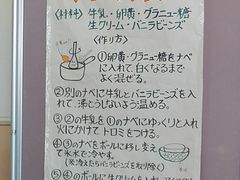 〈材料〉牛乳・卵黄・グラニュー糖
生クリーム・バニラビーンズ
〈作り方〉
①卵黄・グラニュー糖をナベ
に入れて、白くなるまで
よく混ぜる。
②別のナベに牛乳とバニラビーンズを入
れて、沸とうしないよう温める。
③②の牛乳を①のナベにゆっくりと入れ
火にかけてトロミをつける。
④③のナベをボールに移し変え
て氷水で冷やす。
(※冷えたらバニラビーンズを取り除く)
⑤④のボールに生クリームを入れ